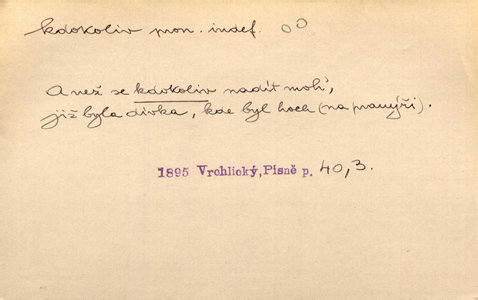 kdokoliv pron. indef. 00
A než se kdokoliv nadít moh',
již byla dívka, kde byl hoch (na pranýři).
1895 Vrchlický, Písně p. 40,3.